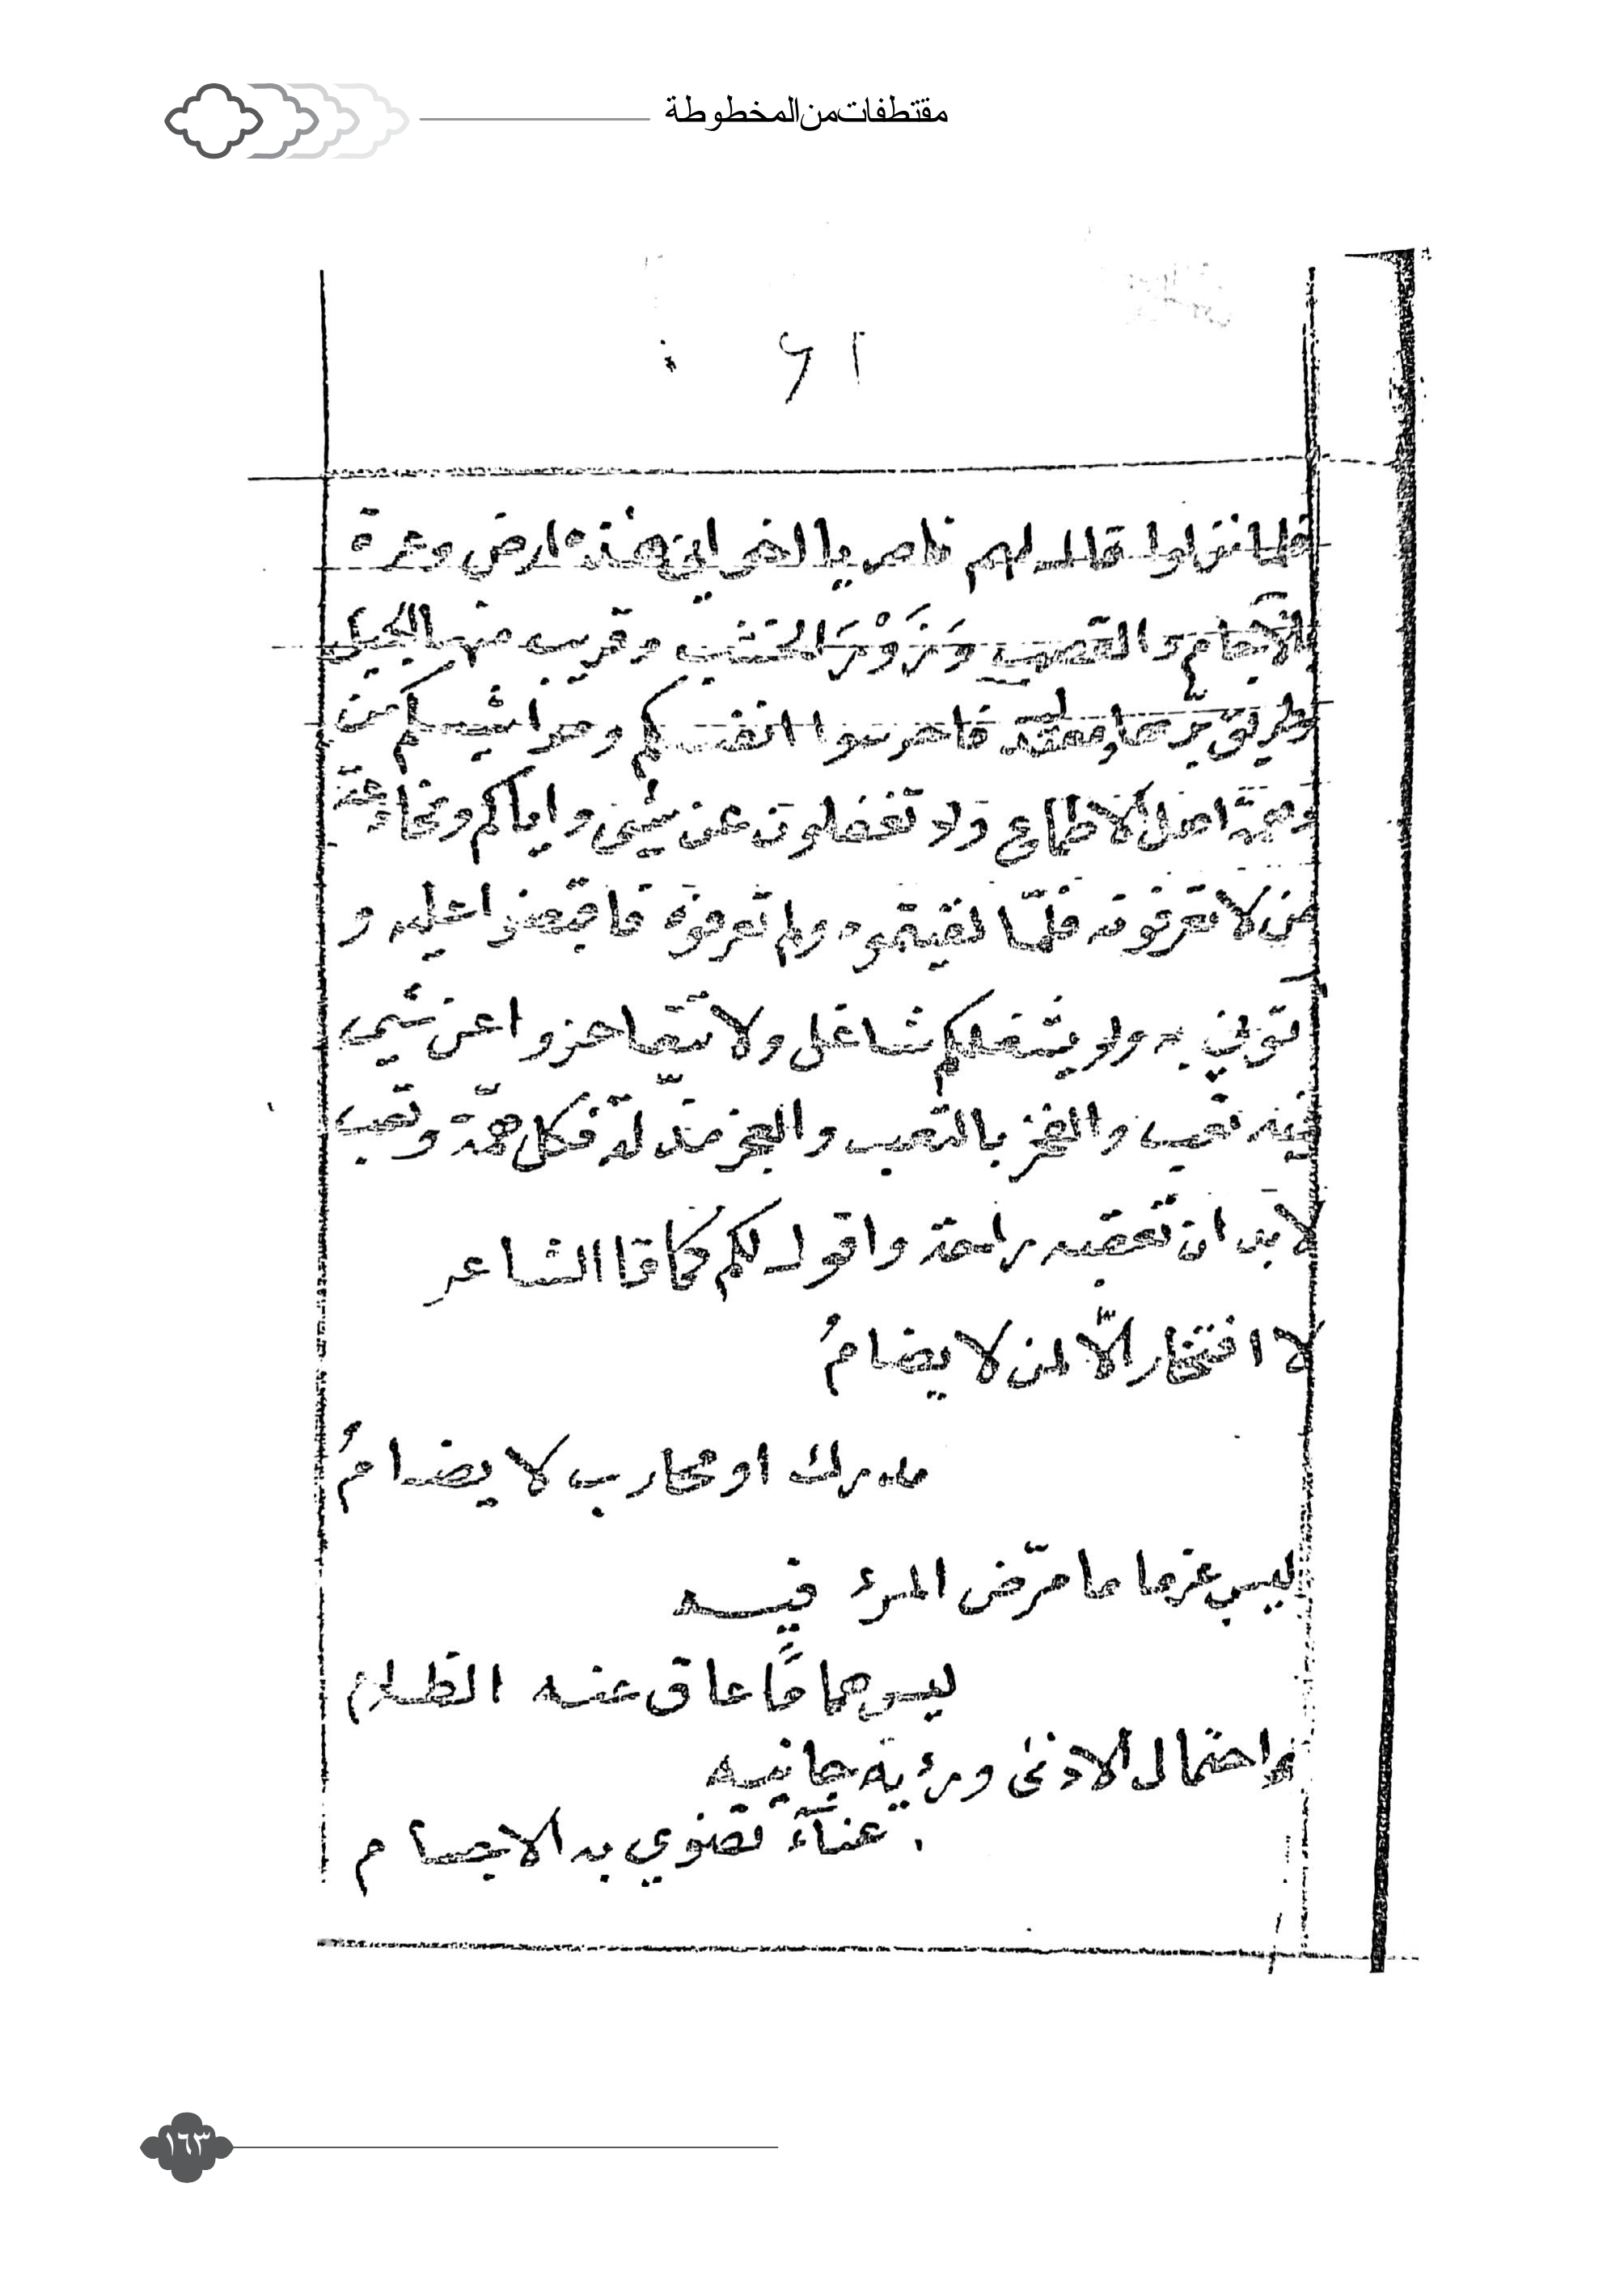 مقتطفات من المخطوطة
فلما نزلوا قال لهم ناصر يا اخواني هذه ارض وعرة
الآجام والقصب وَزَوْرَ الخشب وقريب منها الجبل
وطريق فاحرسوا انفسكم وحواشيكم من
اهل الاطماع ولا تغفلون عن شيئ واياكم ومخادعة
من لا تعرفونه فلمّا لقيتموه ولم تعرفوه فاقبضوا عليه و
تونى به ولا يشغلكم شاغل ولا تتعاجزوا عن شيئ
فيه تعب والفخر بالتعب والعجز مذلّة فكل همّة وتعب
لا بد ان تعقبه راحة واقول لكم كما قا الشاعر
لا افتخار الّا لمن لا يضامُ
مدرك او محارب لا يضامُ
ليس عزما ما مرّض المرء فيه
ليس هما مًا عاق عنه الظلام
واحتمال الاذى ورؤية جانيه
عنآء تضوي به الاجسام
١٦٣